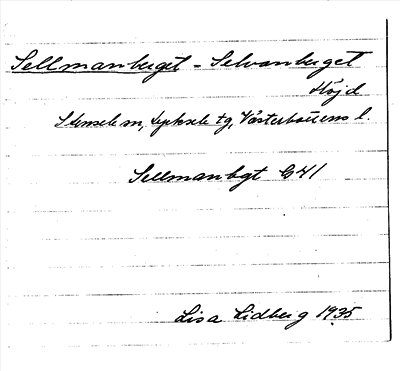 Sellmanberget - Selvanberget
Höjd
Stensele sn, Lycksele tg, Västerbottens l.
Sellmanbgt G41
Lisa Lidberg 1935